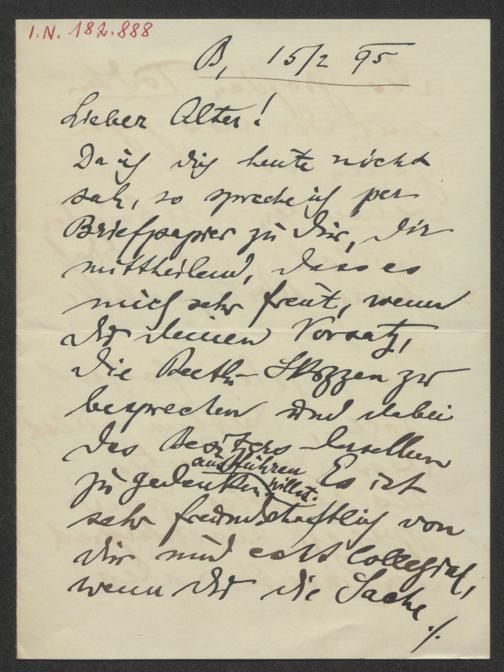 I.N. 182.888
B, 15/2 95
Lieber Alter!
Da ich dich heute nicht
sah, so spreche ich per
Briefpapier zu dir, dir
mittheilend, dass es
mich sehr freut, wenn
du deinen Vorsatz,
die Beeth-Skizzen zu
besprechen und dabei
des Besitzers derselben
zu gedenken, ausführen willst. Es ist
sehr freundschaftlich von
dir und echt collegial,
wenn du die Sache
./.